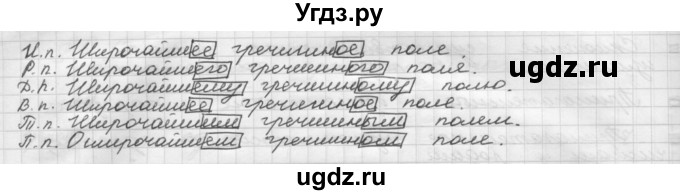 Угдз.ру
И.п. Широчайшее гречишное поле.
Р.п. Широчайшего гречишного поля.
Д.п. Широчайшему гречишному полю.
В.п. Широчайшее гречишное поле.
Т.п. Широчайшим гречишным полем.
П.п. О широчайшем гречишном поле.
ugdz.ru
ugdz.ru
ugdz.ru
ugdz.ru